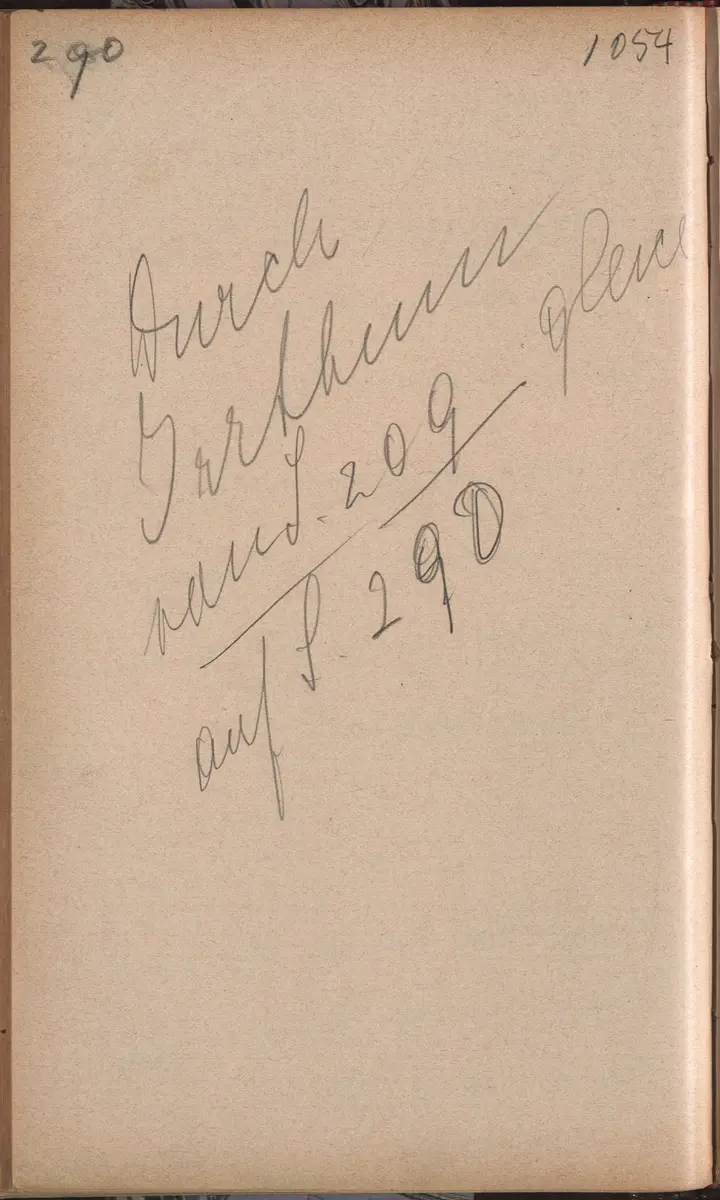 290
1054
Durch
Irrthum
von S. 209 gleich
auf S. 290